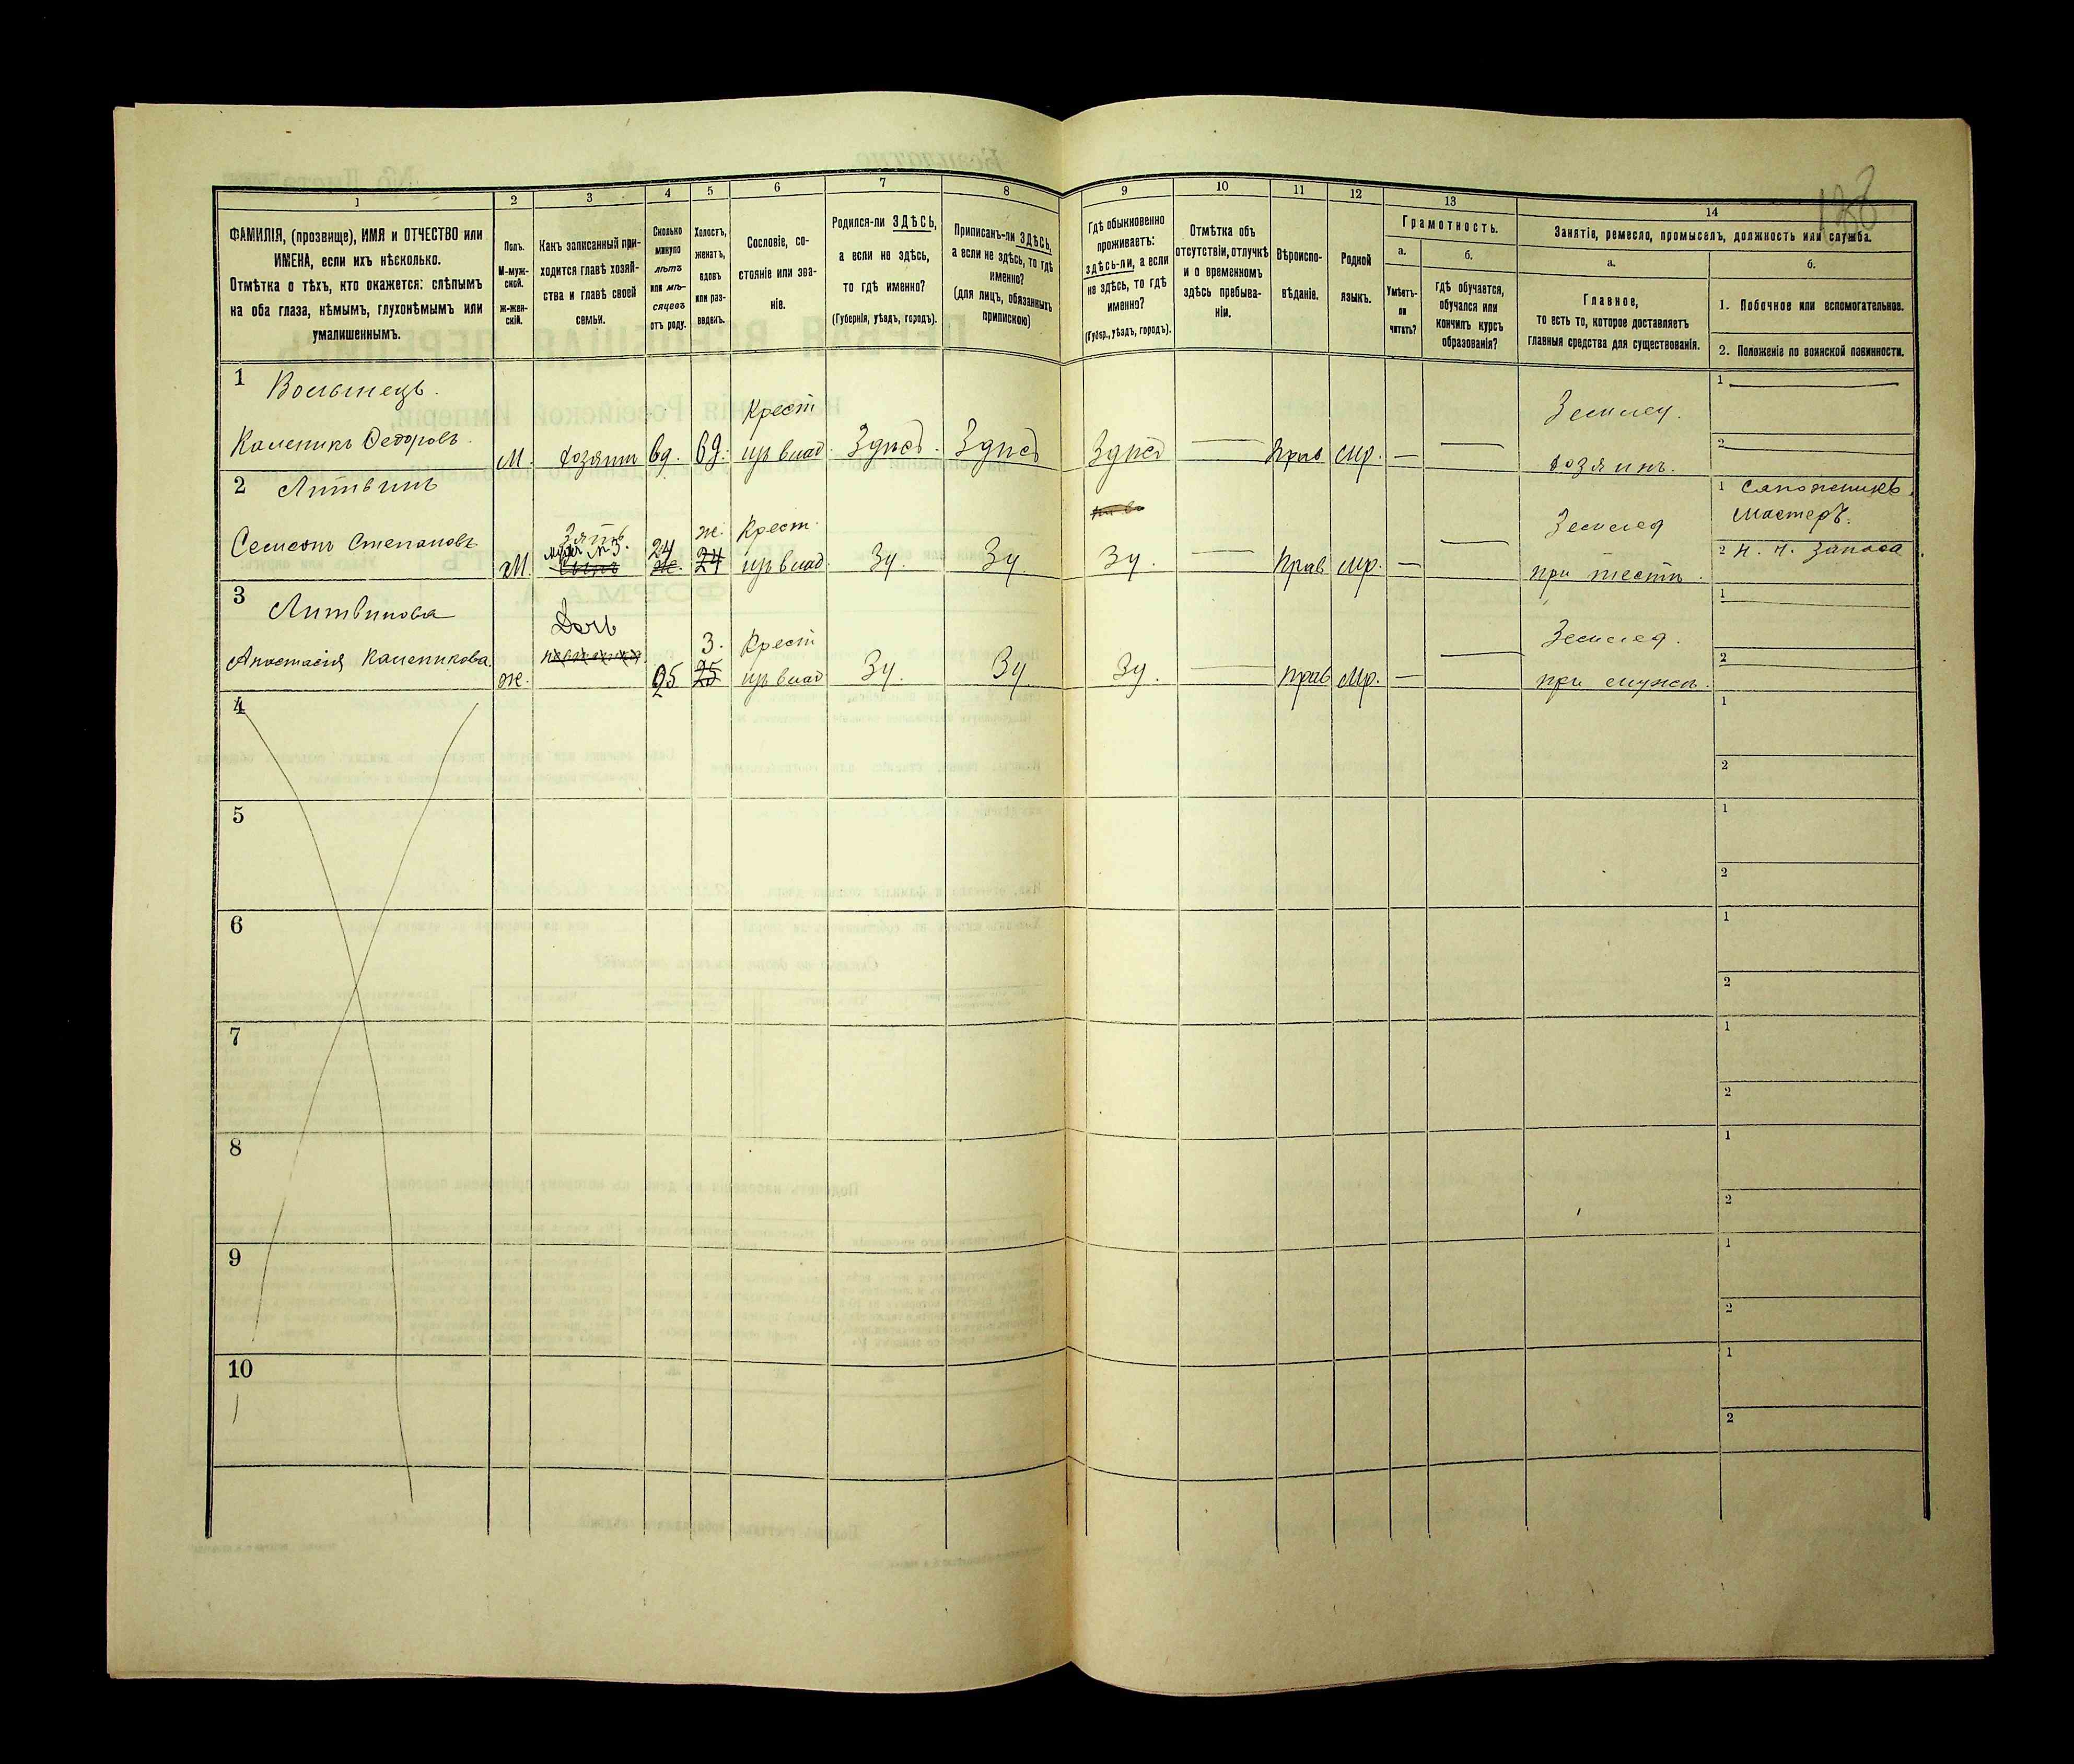 188
1 2 3 4 5 6 7 8 9 10 11 12 13 14
ФАМИЛІЯ, (прозвище), ИМЯ и ОТЧЕСТВО или
ИМЕНА, если ихъ нѣсколько.
Отмѣтка о тѣхъ, кто окажется: слѣпымъ
на оба глаза, нѣмымъ, глухонѣмымъ или
умалишеннымъ.
Полъ.
М-муж-
ской.
Ж-жен-
скій.
Какъ записанный при-
ходится главѣ хозяй-
ства и главѣ своей
семьи.
Сколько
минуло
лѣтъ
или мѣ-
сяцевъ
отъ роду.
Холостъ,
женатъ,
вдовъ
или раз-
веденъ.
Сословіе, со-
стояніе или зва-
ніе.
Родился-ли ЗДѢСЬ,
а если не здѣсь,
то гдѣ именно?
(Губернія, уѣздъ, городъ).
Приписанъ-ли ЗДѢСЬ,
а если не здѣсь, то гдѣ
именно?
(для лицъ, обязанныхъ
припискою)
Гдѣ обыкновенно
проживаетъ:
здѣсь-ли, а если
не здѣсь, то гдѣ
именно?
(Губер., уѣздъ, городъ).
Отмѣтка объ
отсутствіи, отлучкѣ
и о временномъ
здѣсь пребыва-
ніи.
Вѣроиспо-
вѣданіе.
Родной
языкъ.
Грамотность.
а.
Умѣетъ-
ли
читать?
б.
гдѣ обучается,
обучался или
кончилъ курсъ
образованія?
Занятіе, ремесло, промыселъ, должность или служба.
а.
Главное,
то есть то, которое доставляетъ
главныя средства для существованія.
б.
1. Побочное или вспомогательное.
2. Положеніе по воинской повинности.
1 Волынецъ.
Крест Землед. 1
Каленикъ Ѳедоровъ. М. хозяин вд. изъ влад. Здѣсь. Здѣсь Здѣсь — Прав мр. — — хозяинъ. 2
2 Литвинъ 1 Сапожникъ
Зять ж. Крест. Землед мастеръ.
Семеонъ Степановъ М. сынъ 24 24 изъ влад. Зд. Зд. Зд. — Прав мр. — — при тестѣ. 2 н. ч. запаса
3 Литвинова 1
Дочь 3. Крест Землед.
Анастасія Каленикова. ж. 25 25 изъ влад Зд. Зд. Зд. — прав мр. — — при мужѣ. 2
4 1
2
5 1
2
6 1
2
7 1
2
8 1
2
9 1
2
10 1
2